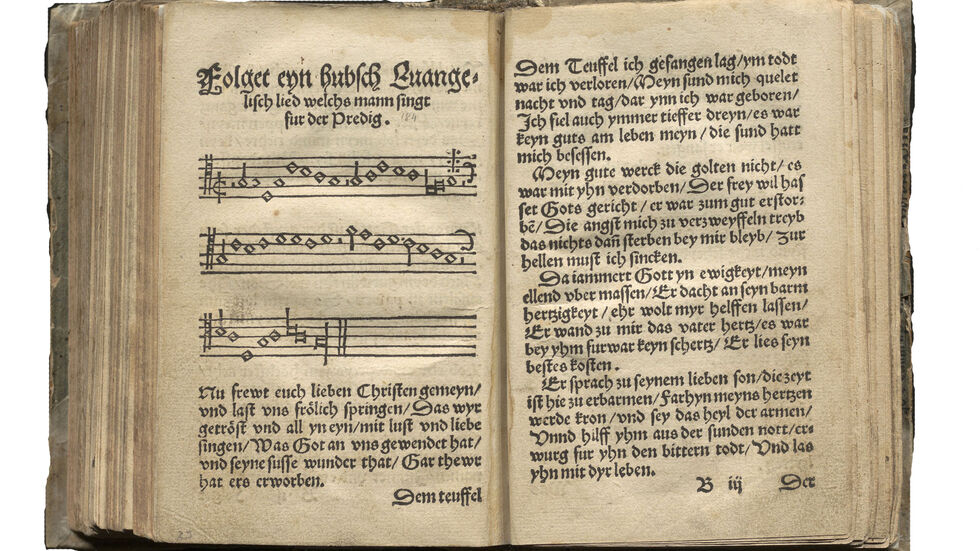 Folget eyn hubsch Euange-
lisch lied welchs mann singt
fur der Predig.
184
Nu frewt euch lieben Christen gemeyn/
vnd last vns frölich springen/ Das wyr
getröst vnd all yn eyn/ mit lust vnd liebe
singen/ Was Got an vns gewendet hat/
vnd seyne susse wunder that/ Gar thewr
hat ers erworben.
Dem teuffel
Dem Teuffel ich gefangen lag/ ym todt
war ich verloren/ Meyn sund mich quelet
nacht vnd tag/ dar ynn ich war geboren/
Ich fiel auch ymmer tieffer dreyn/ es war
keyn guts am leben meyn/ die sund hatt
mich besessen.
Meyn gute werck die golten nicht/ es
war mit yhn verdorben/ Der frey wil has
set Gots gericht/ er war zum gut erstor-
bē/ Die angst mich zu verzweyffeln treyb
das nichts dañ sterben bey mir bleyb/ zur
hellen must ich sincken.
Da iammert Gott yn ewigkeyt/ meyn
ellend vber massen/ Er dacht an seyn barm
hertzigkeyt/ ehr wolt myr helffen lassen/
Er wand zu mir das vater hertz/ es war
bey yhm furwar keyn schertz/ Er lies seyn
bestes kosten.
Er sprach zu seynem lieben son/ die zeyt
ist hie zu erbarmen/ Farhyn meyns hertzen
werde kron/ vnd sey das heyl der armen/
Vnnd hilff yhm aus der sunden nott/ er-
wurg fur yhn den bittern todt/ Vnd las
yhn mit dyr leben.
B iij Der